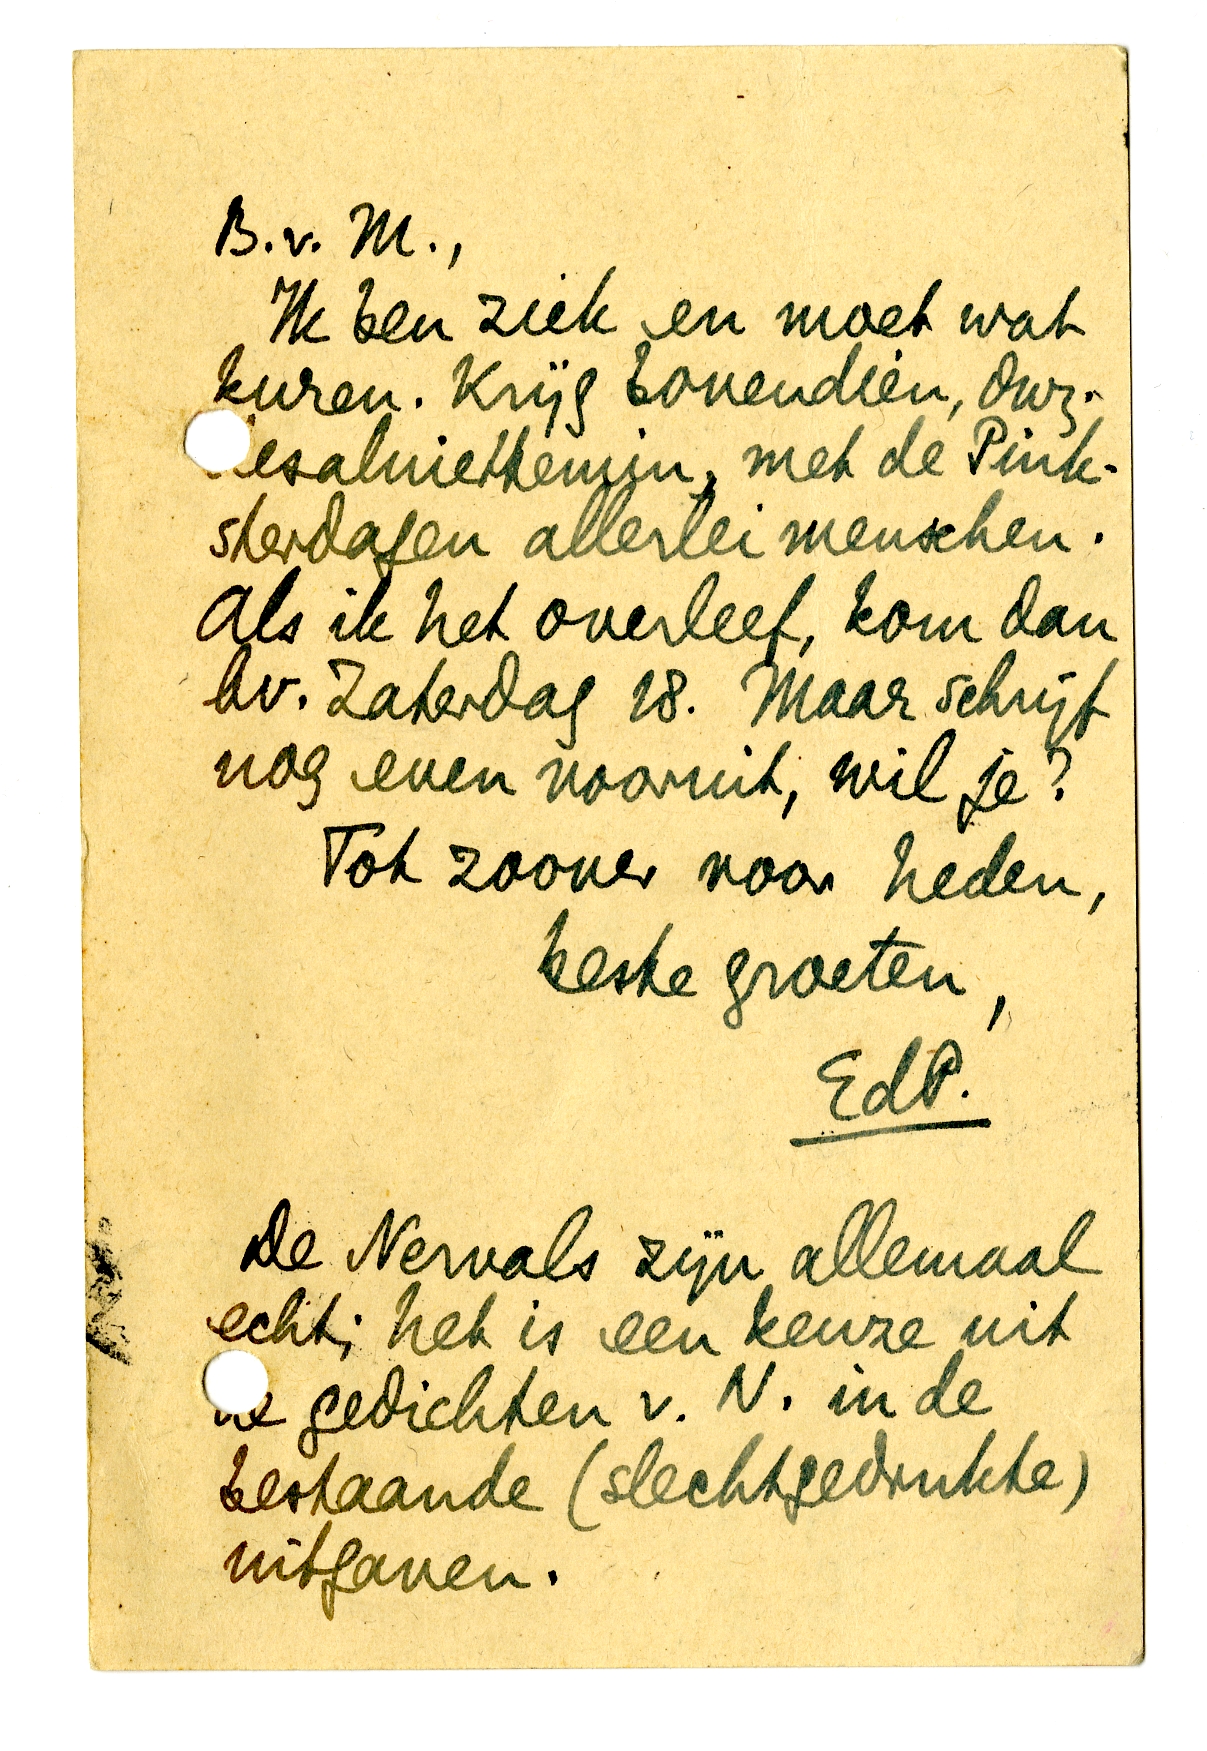 B.v. M.,
Ik ben ziek en moet wat
kuren. Krijg bovendien, dwz.
desalniettemin, met de Pink-
sterdagen allerlei menschen.
Als ik het overleef, kom dan
bv. Zaterdag 18. Maar schrijf
nog even vooruit, wil je?
Tot zoover voor heden,
beste groeten,
EdP.
De Nervals zijn allemaal
echt; het is een keuze uit
de gedichten v. N. in de
bestaande (slechtgedrukte)
uitgaven.